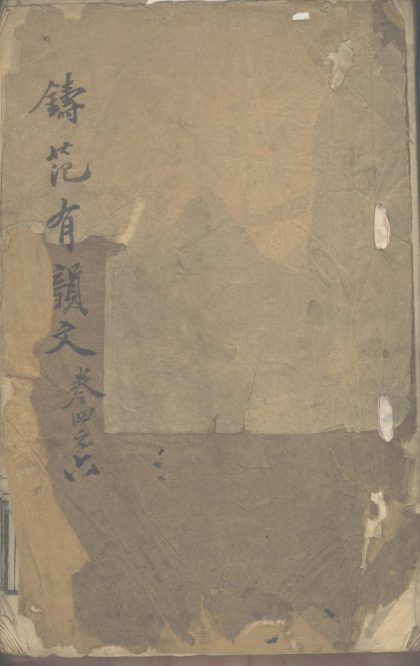 鑄范有韻文
卷四之六